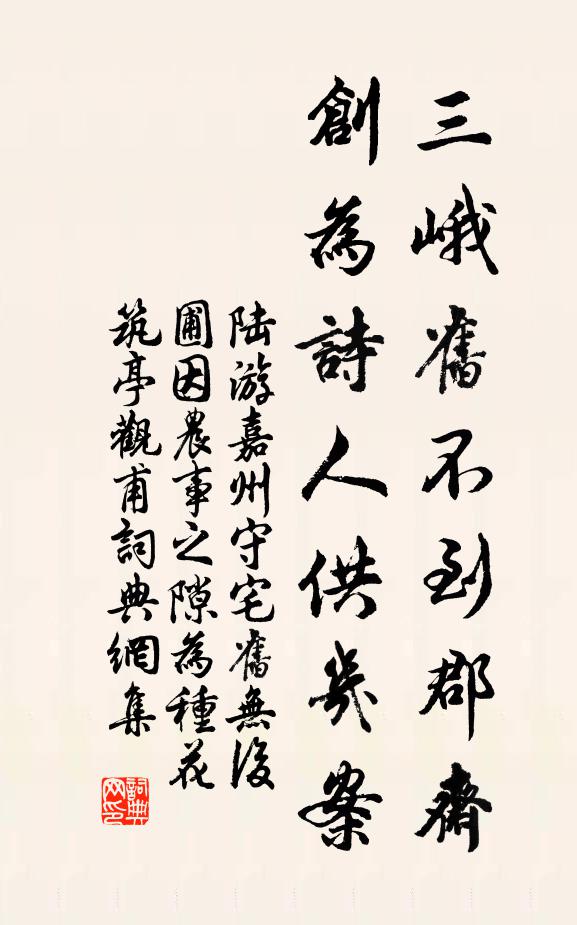 三峨舊不到郡齋
創為詩人供幾案
陸游嘉州守宅舊無後
圃因農事之隙為種花
筑亭觀甫詞典網集
詞典网印